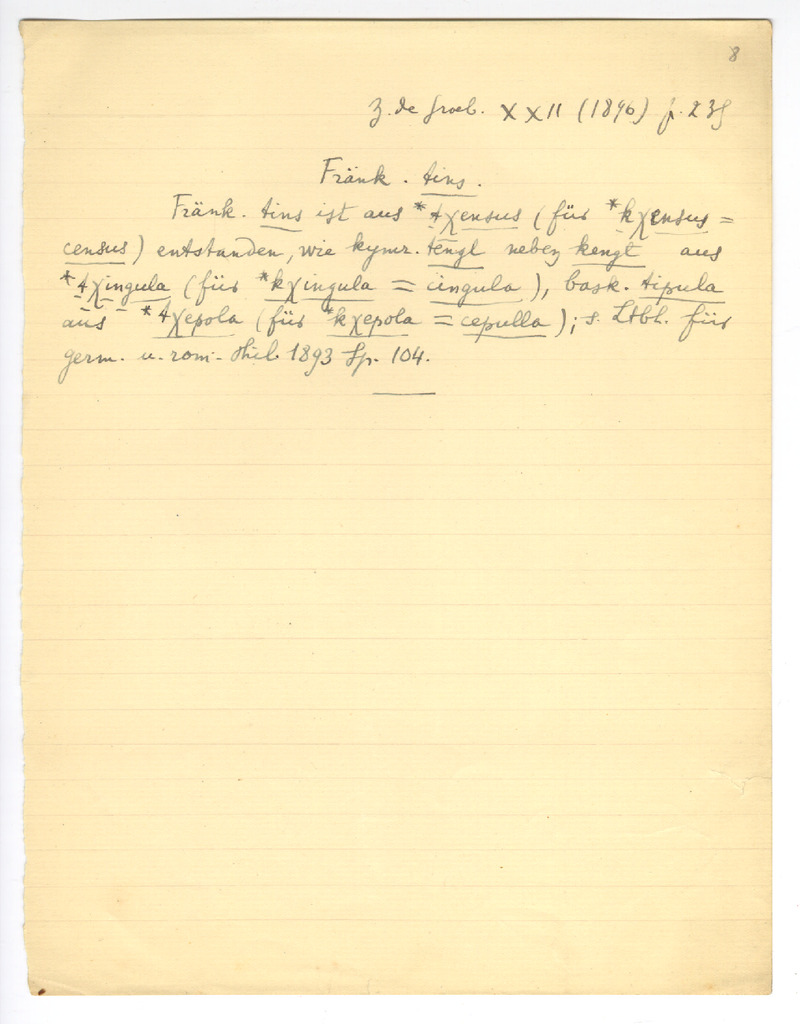 8
Z. de Groeb. XXII (1896) p. 235
Fränk. tins.
Fränk. tins ist aus *tχensus (für *kχensus =
census) entstanden, wie kymr. tengl neben kengl aus
*tχingula (für *kχingula = cingula), bask. tipula
aus *tχepola (für *kχepola = cepulla); s. Ltbl. für
germ. u. rom. Phil. 1893 Sp. 104.